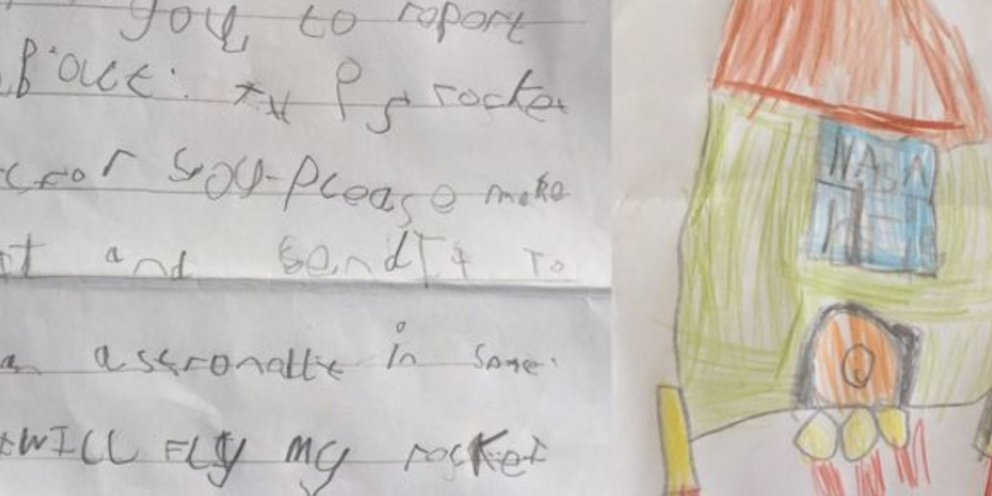 you to roport
B'out: rocket
for you-please make
it and send It to
an assronatte in Some.
WILL FLy my rocket
NASA